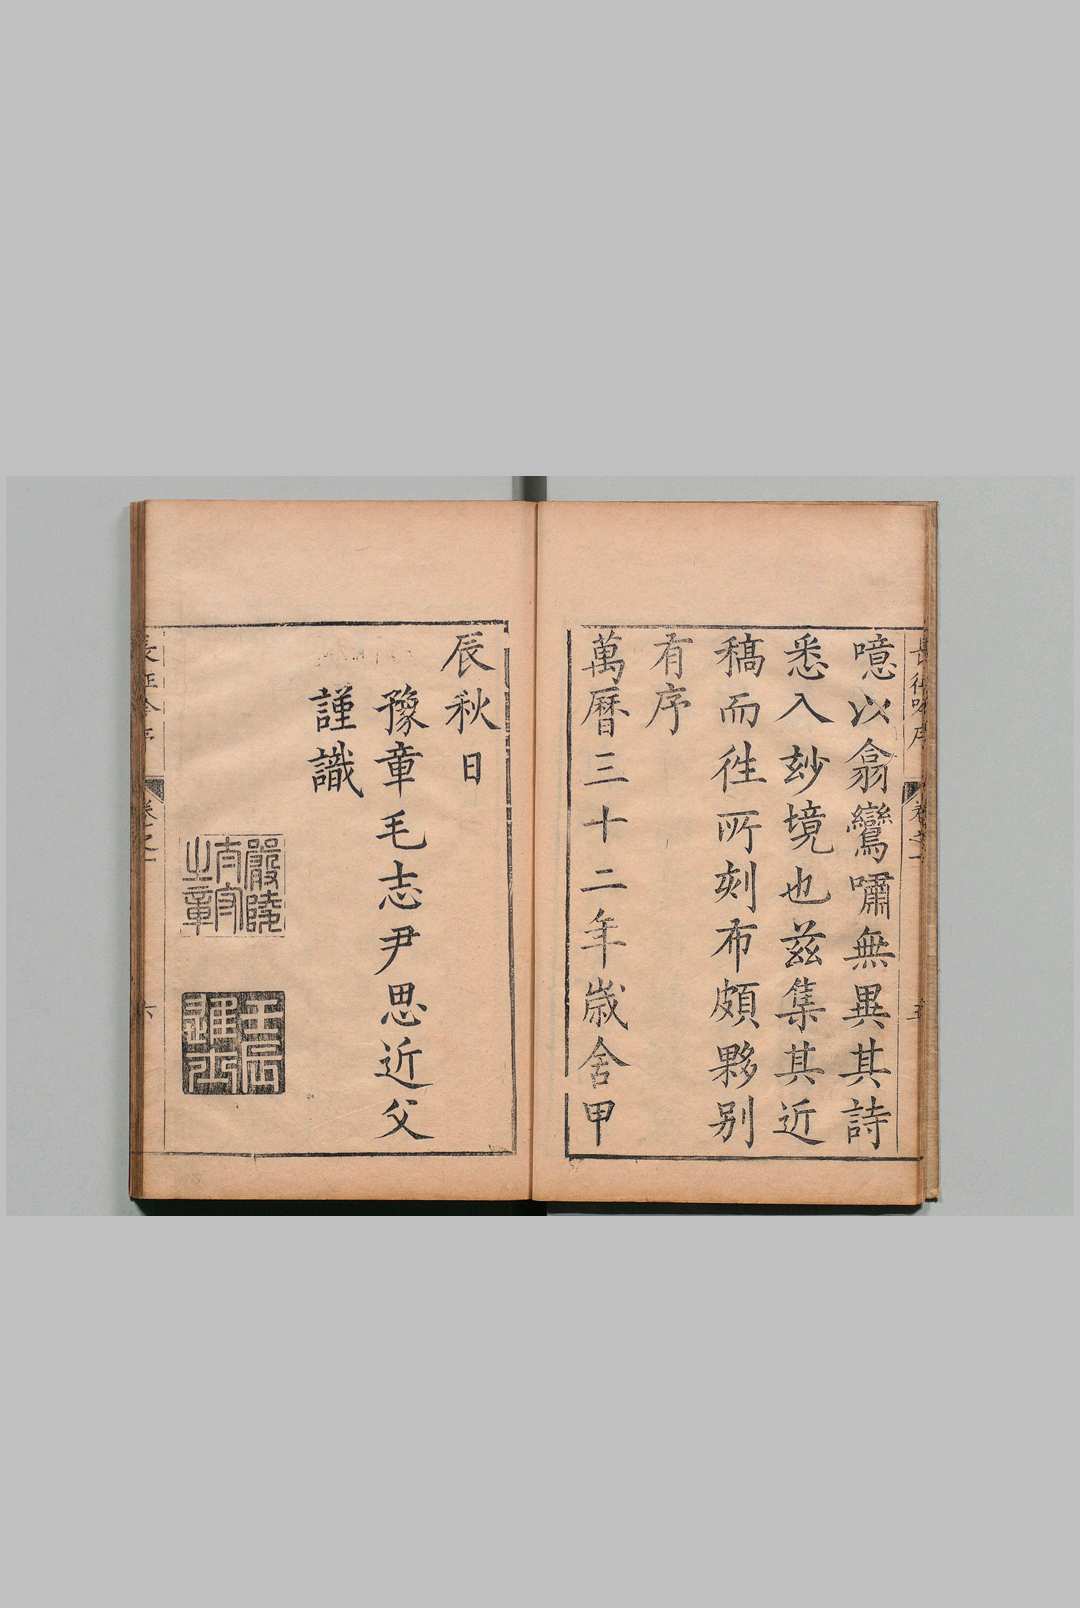 噫以翕鸞嘯無異其詩
悉入玅境也茲集其近
稿而徃所刻布頗夥别
有序
萬曆三十二年歲舍甲
辰秋日
豫章毛志尹思近父
謹識
嚴陵
太守
之章